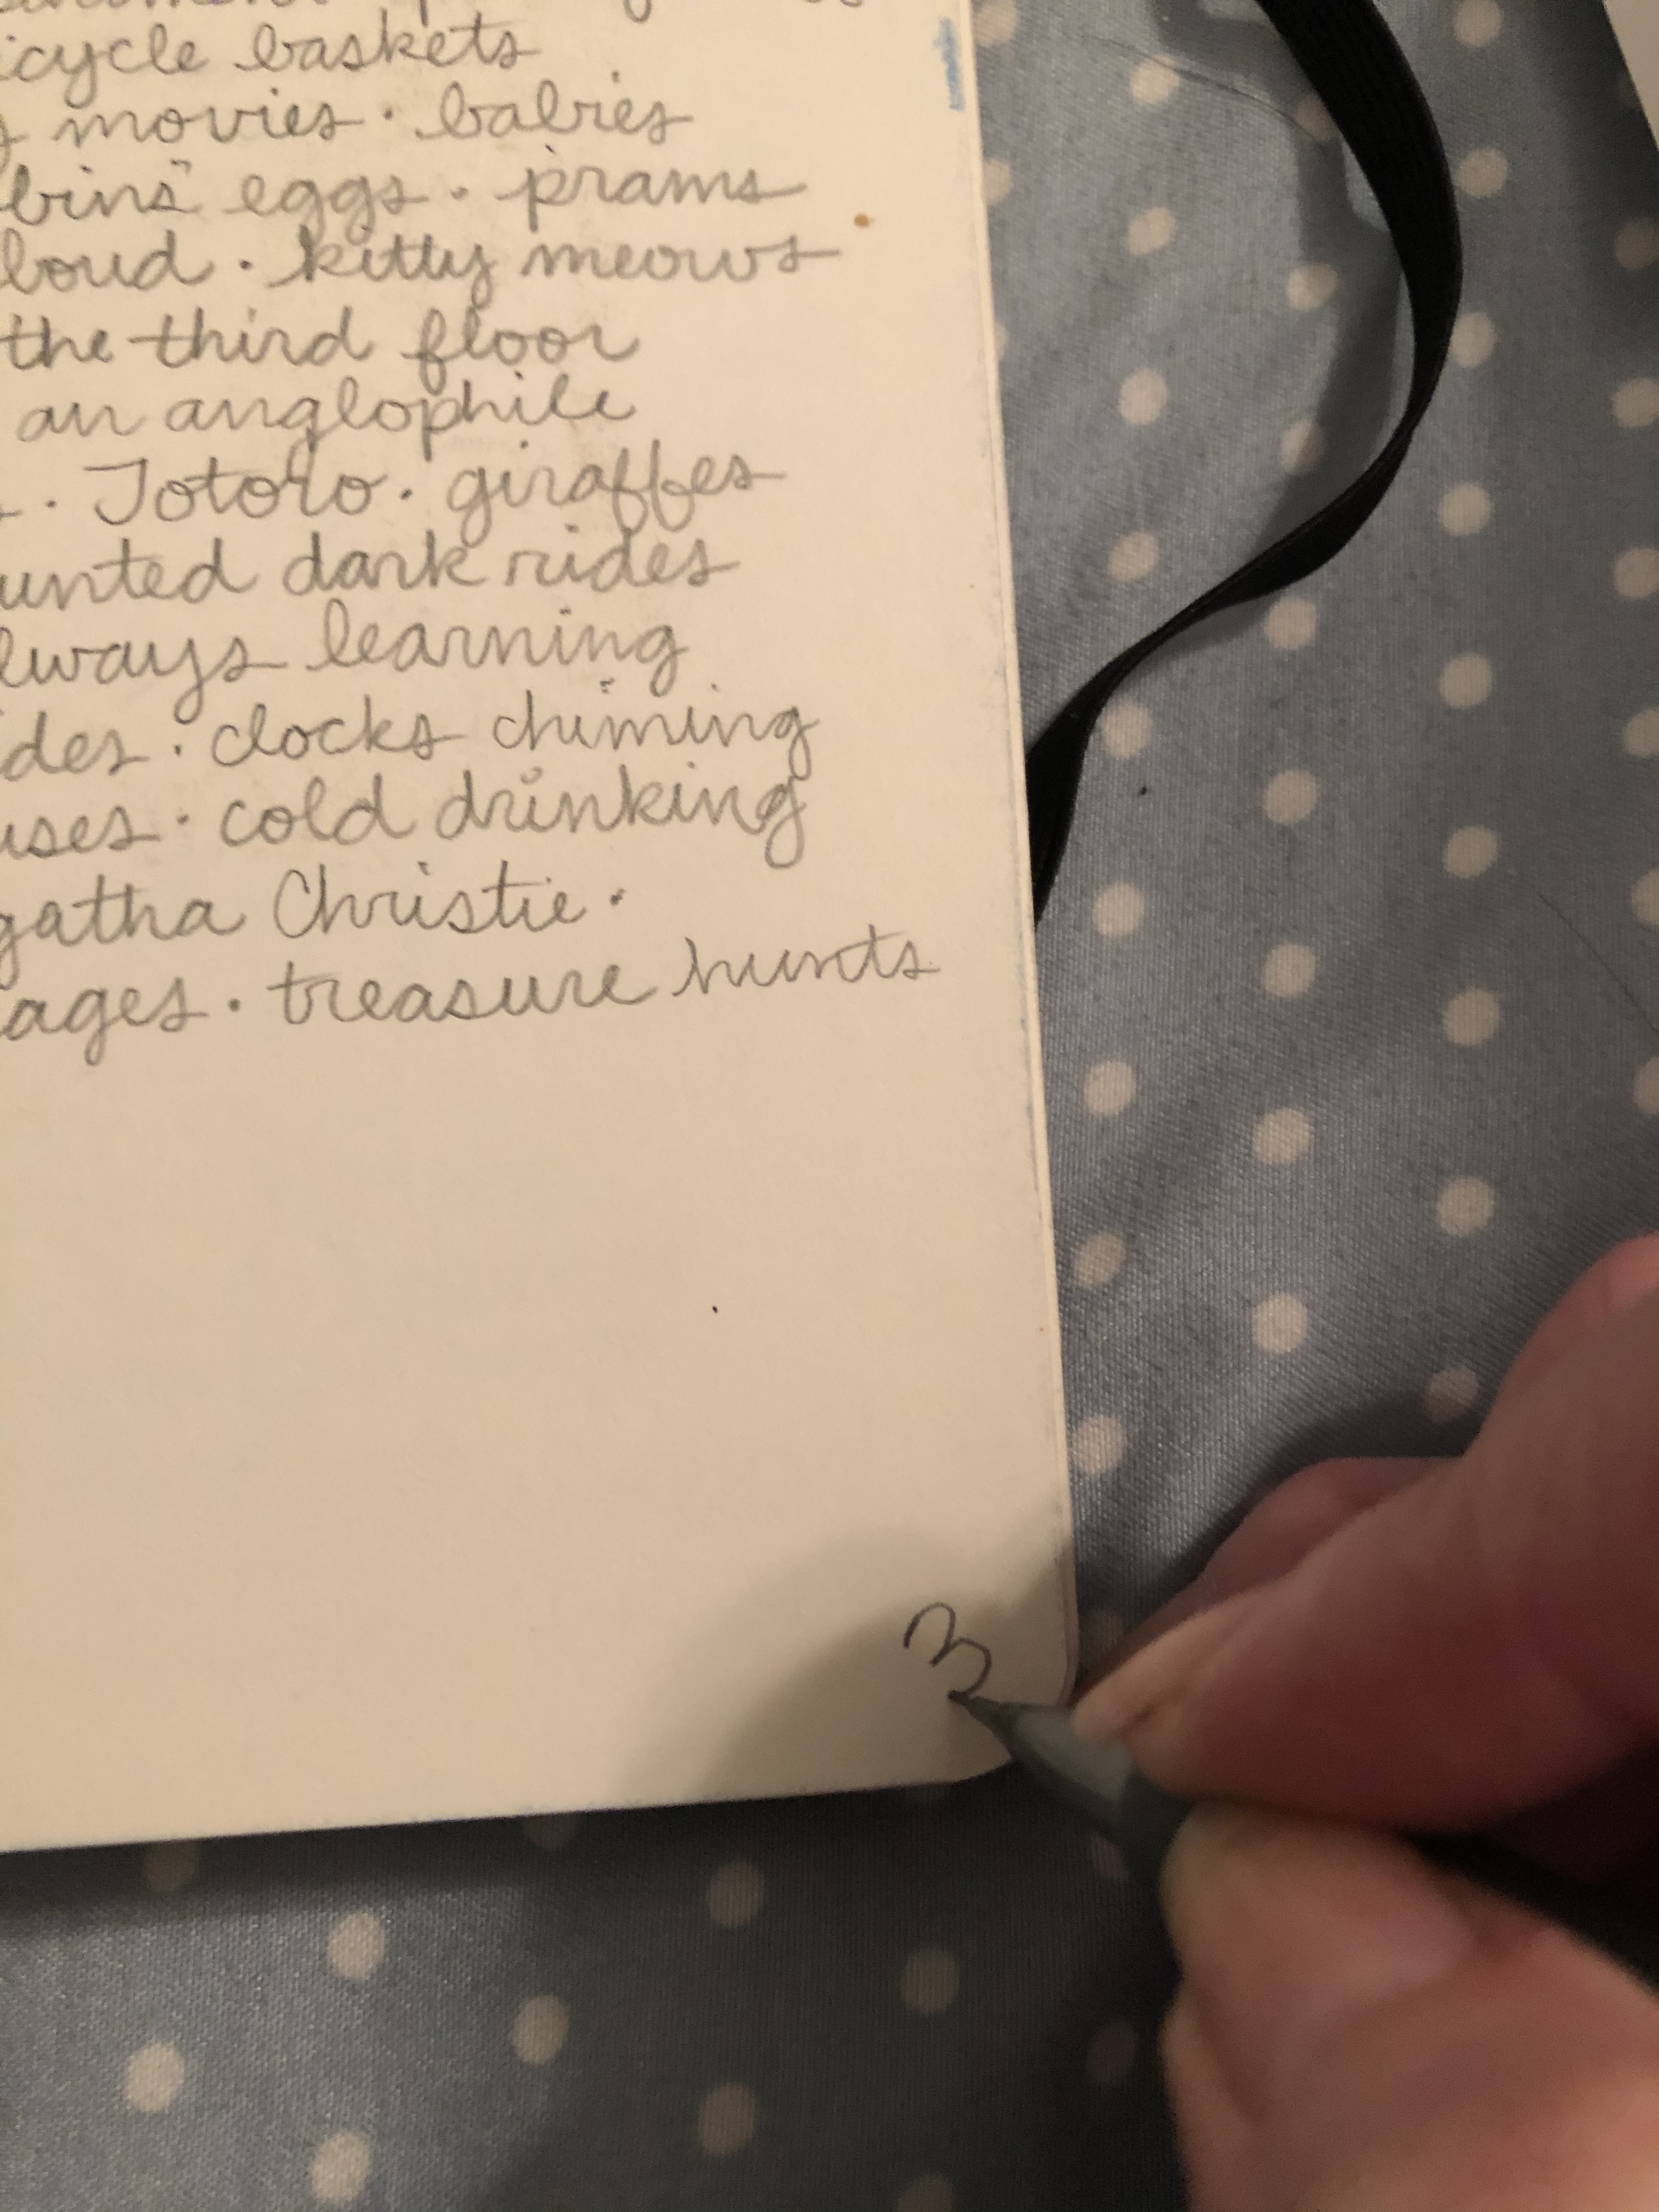 icycle baskets
movies · babies
bins' eggs · prams
loud · kitty meows
the third floor
an anglophile
· Totoro · giraffes
unted dark rides
lways learning
ides · clocks chiming
uses · cold drinking
gatha Christie ·
ages · treasure hunts
3